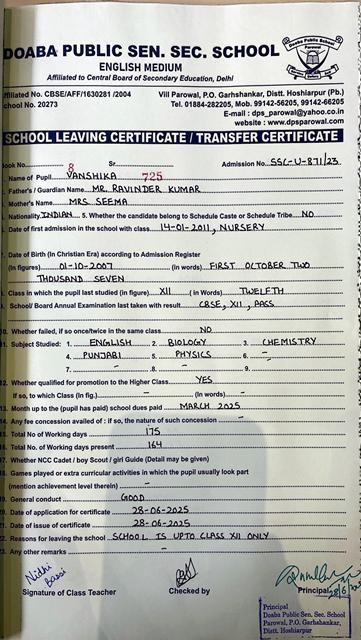 DOABA PUBLIC SEN. SEC. SCHOOL
ENGLISH MEDIUM
Affiliated to Central Board of Secondary Education, Delhi
ffiliated No. CBSE/AFF/1630281 /2004
chool No. 20273
Vill Parowal, P.O. Garhshankar, Distt. Hoshiarpur (Pb.)
Tel. 01884-282205, Mob. 99142-56205, 99142-66205
E-mail : dps_parowal@yahoo.co.in
website : www.dpsparowal.com
SCHOOL LEAVING CERTIFICATE / TRANSFER CERTIFICATE
ook No. 8 Sr. 725 Admission No. SSC-U-871/23
. Name of Pupil VANSHIKA
. Father's / Guardian Name MR. RAVINDER KUMAR
. Mother's Name MRS. SEEMA
. Nationality INDIAN 5. Whether the candidate belong to Schedule Caste or Schedule Tribe NO
. Date of first admission in the school with class 14-01-2011, NURSERY
. Date of Birth (In Christian Era) according to Admission Register
(In figures) 01-10-2007 (In words) FIRST OCTOBER TWO
THOUSAND SEVEN
. Class in which the pupil last studied (in figure) XII (in Words) TWELFTH
. School/ Board Annual Examination last taken with result CBSE, XII, PASS
0. Whether failed, if so once/twice in the same class NO
1. Subject Studied: 1. ENGLISH 2. BIOLOGY 3. CHEMISTRY
4. PUNJABI 5. PHYSICS 6. -
7. - 8. - 9.
2. Whether qualified for promotion to the Higher Class YES
If so, to which Class (in Fig.) - (In Words) -
13. Month up to the (pupil has paid) school dues paid MARCH 2025
14. Any fee concession availed of : if so, the nature of such concession -
15. Total No of Working days 175
16. Total No. of Working days present 164
17. Whether NCC Cadet / boy Scout / girl Guide (Detail may be given)
18. Games played or extra curricular activities in which the pupil usually took part
(mention achievement level therein) -
19. General conduct GOOD
20. Date of application for certificate 28-06-2025
21. Date of issue of certificate 28-06-2025
22. Reasons for leaving the school SCHOOL IS UPTO CLASS XII ONLY
23. Any other remarks -
Nidhi
Bassi
Signature of Class Teacher
Checked by
Principal
Principal
Doaba Public Sen. Sec. School
Parowal, P.O. Garhshankar,
Distt. Hoshiarpur